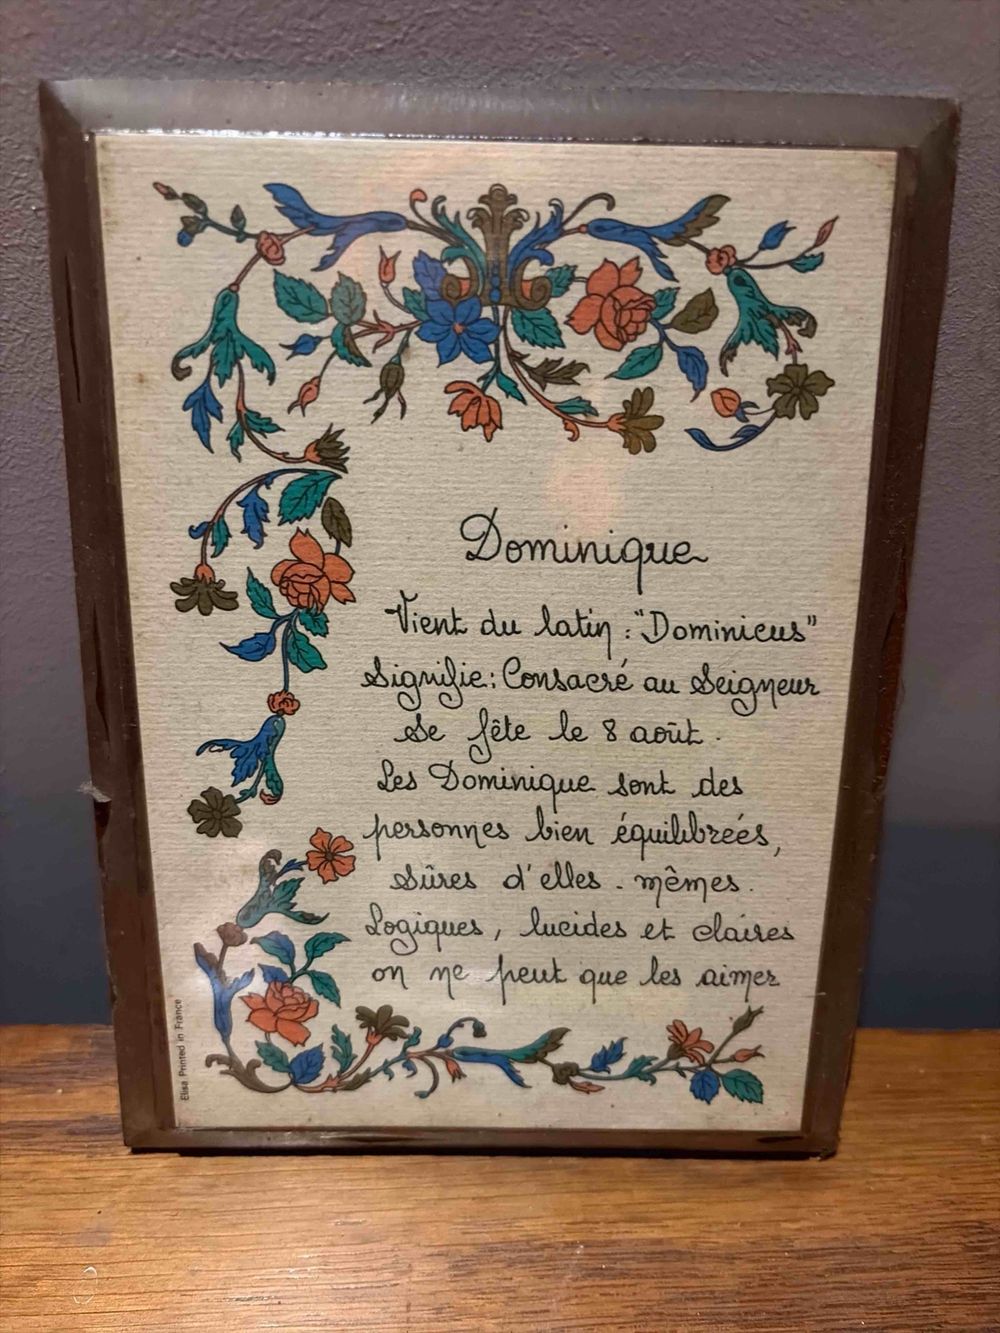 Dominique
Vient du latin : "Dominicus"
Signifie : Consacré au Seigneur
Se fête le 8 août .
Les Dominique sont des
personnes bien équilibreés,
sûres d'elles - mêmes .
Logiques, lucides et claires
on ne peut que les aimer
Elisa Printed in France